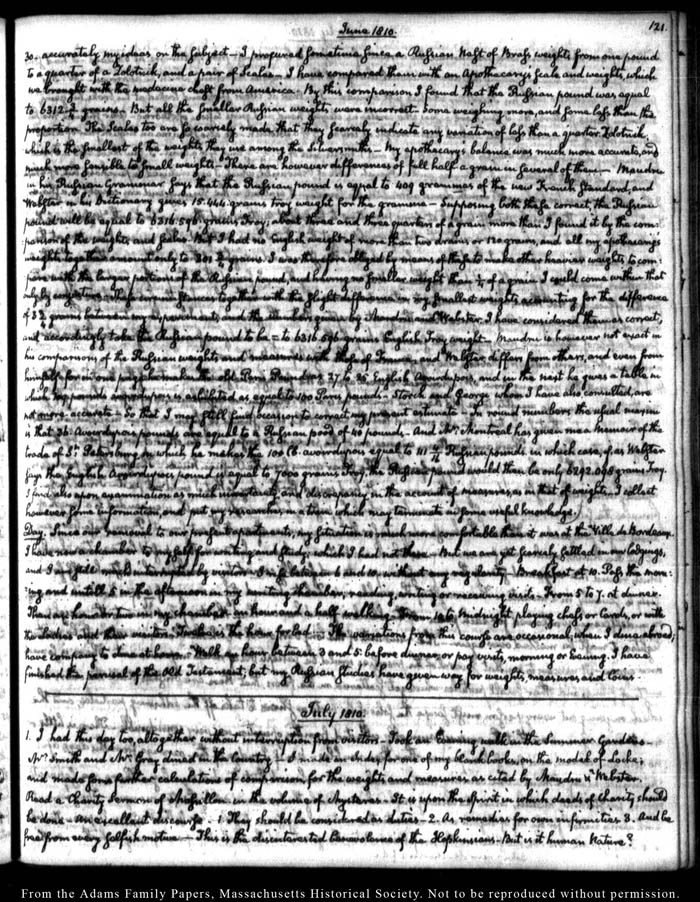 June 1810.
121.
30. accurately my ideas on the subject — I procured sometime since a Russian Nest of Brass weights from one pound
to a quarter of a Zolotnick, and a pair of Scales — I have compared them with an Apothecary's Scale and weights, which
we brought with the medecine chest from America. By this comparison I found that the Russian pound was equal
to 6312 grains. But all the smaller Russian weights were incorrect — Some weighing more, and some less than the
proportion. The Scales too are so coarsely made that they scarcely indicate any variation of less than a quarter Zolotnick,
which is the smallest of the weights they use among the Silversmiths — My apothecary's balance was much more accurate, and
much more sensible to small weights. There are however differences of full half a grain in several of them — Maudru
in his Russian Grammar says that the Russian pound is equal to 409 grammes of the new French Standard, and
Webster in his Dictionary gives 15.444 grains troy weight for the gramme — Supposing both these correct, the Russian
pound will be equal to 6316.596 grains Troy; about three and three quarters of a grain more than I found it by the com-
parison of the weights and Scales. But I had no English weight of more than two drams or 120 grains, and all my apothecary's
weights together amount only to 301 grains. I was therefore obliged by means of these to make other heavier weights to com-
pare with the larger portions of the Russian pound, and having no smaller weight than ½ of a grain I could come within that
only by conjecture — These circumstances together with the slight difference in my smallest weights accounting for the difference
of 3¾ grains between my experiments, and the numbers given by Maudru and Webster, I have considered them as correct,
and accordingly take the Russian pound to be = to 6316.596 grains English Troy weight — Maudru is however not exact in
his comparisons of the Russian weights and measures with those of France, and Webster differs from others, and even from
himself for in one page he makes the old Paris Pound as 27 to 25 English Avoirdupois, and in the next he gives a table in
which 109 pounds avoirdupois is exhibited as equal to 100 Paris pounds — Storch and George whom I have also consulted, are
not more accurate — So that I may still find occasion to correct my present estimate — In round numbers the usual reckoning
is that 36 Avoirdupois pounds are equal to a Russian pood of 40 pounds. And Mr. Montreal has given me a Memoir of the
trade of St. Petersburg in which he makes the 100 lb. avoirdupois equal to 111 Russian pounds in which case, if, as Webster
says the English Avoirdupois pound is equal to 7000 grains Troy, the Russian pound would then be only 6292.098 grains Troy.
I find also upon examination as much uncertainty and discrepancy, in the account of measures, as in that of weights. I collect
however some information, and put my researches in a train which may terminate in some useful knowledge.
Day. Since our removal to our present apartments, my situation is much more comfortable than it was at the Ville de Bordeaux.
I have now a chamber to myself for writing and study, which I had not there — But we are yet scarcely settled in our lodgings,
and I am still much interrupted by visitors. I rise between 6 and 10, without any regularity. Breakfast at 10. Pass the morn-
ing and untill 5 in the afternoon in my writing chamber, reading, writing or receiving visits — From 5 to 7. at dinner.
Then an hour or two in my chamber — an hour and a half walking. From to midnight playing chess or Cards, or with
the Ladies and their visitors. Twelve is the hour for bed — The variations from this course are occasional, when I dine abroad;
have company to dine at home — Walk an hour between 3 and 5 before dinner, or pay visits, morning or Evening. I have
finished the perusal of the Old Testament; but my Russian Studies have given way for weights, measures and coins.
July 1810.
1. I had this day too, altogether without interruption from visitors. Took an Evening walk in the Summer Gardens —
Mr. Smith and Mr. Gray dined in the Country — I made an index for one of my blank books, on the model of Locke;
and made some further calculations of comparison for the weights and measures as cited by Maudru & Webster.
Read a Charity Sermon of Massillon in the volume of Mysteries — It is upon the Spirit in which deeds of Charity should
be done — An excellent discourse — 1. They should be considered as duties — 2. As remedies for our own infirmities 3. And be
free from every selfish motive — This is the disinterested benevolence of the Hopkinsians. But is it human Nature?
From the Adams Family Papers, Massachusetts Historical Society. Not to be reproduced without permission.